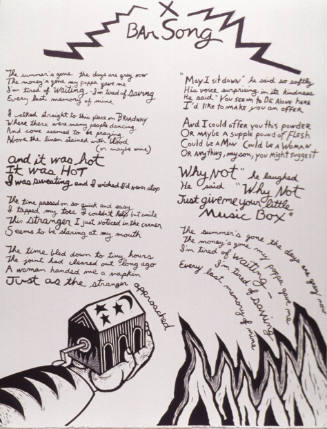 BAR SONG
The summer's gone the days are grey now
The money's gone my poppa gave me
I'm tired of Waiting I'm tired of Saving
Every last memory of mine
I walked straight to this place on Broadway
Where there were many people dancing
And some seemed to be praying
Above the linen stained with blood
(or maybe wine)
and it was hot
It was HOT
I was sweating and I wished I'd worn
The time passed on so quick and easy
I tapped my toes I couldn't help but smile
This stranger I just noticed in the corner
Seems to be staring at my mouth
The time bled down to tiny hours
The joint had cleared out long ago
A woman handed me a napkin
Just as the stranger
approached
"May I sit down" he said so softly
His voice surprising in its kindness
He said "You seem to be alone here
I'd like to make you an offer
And I could offer you this powder
Or maybe a supple pound of Flesh
Could be a Man Could be a Woman
Or Anything, my son, you might suggest
WHY NOT" he laughed
He said "WHY NOT
Just give me your little
Music Box"
The summer's gone the days are grey now
The money's gone my poppa gave me
I'm tired of waiting -
I'm tired of saving
Every last memory of mine